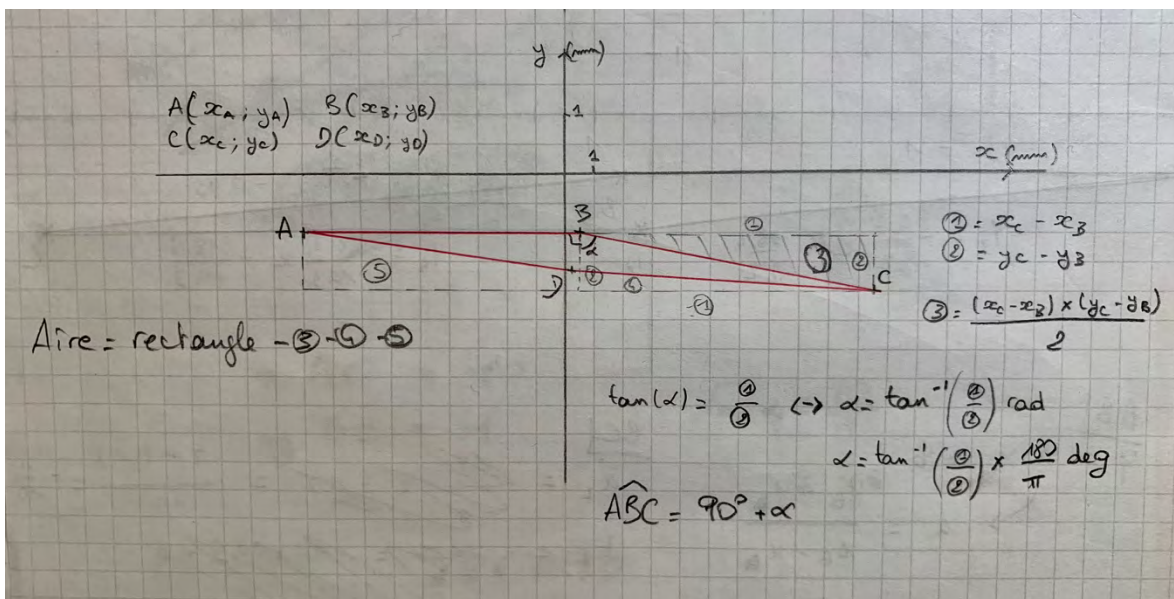 y (mm)
A(x_A ; y_A) B(x_B ; y_B)
C(x_C ; y_C) D(x_D ; y_D)
1
1
x (mm)
A
B
α
① 
③ ②
C
⑤
D ② ④
①
① = x_C - x_B
② = y_C - y_B
③ = (x_C - x_B) × (y_C - y_B)
2
Aire = rectangle - ③ - ④ - ⑤
tan(α) = ①/② <-> α = tan⁻¹(①/②) rad
α = tan⁻¹(①/②) × 180/π deg
ABC = 90° + α